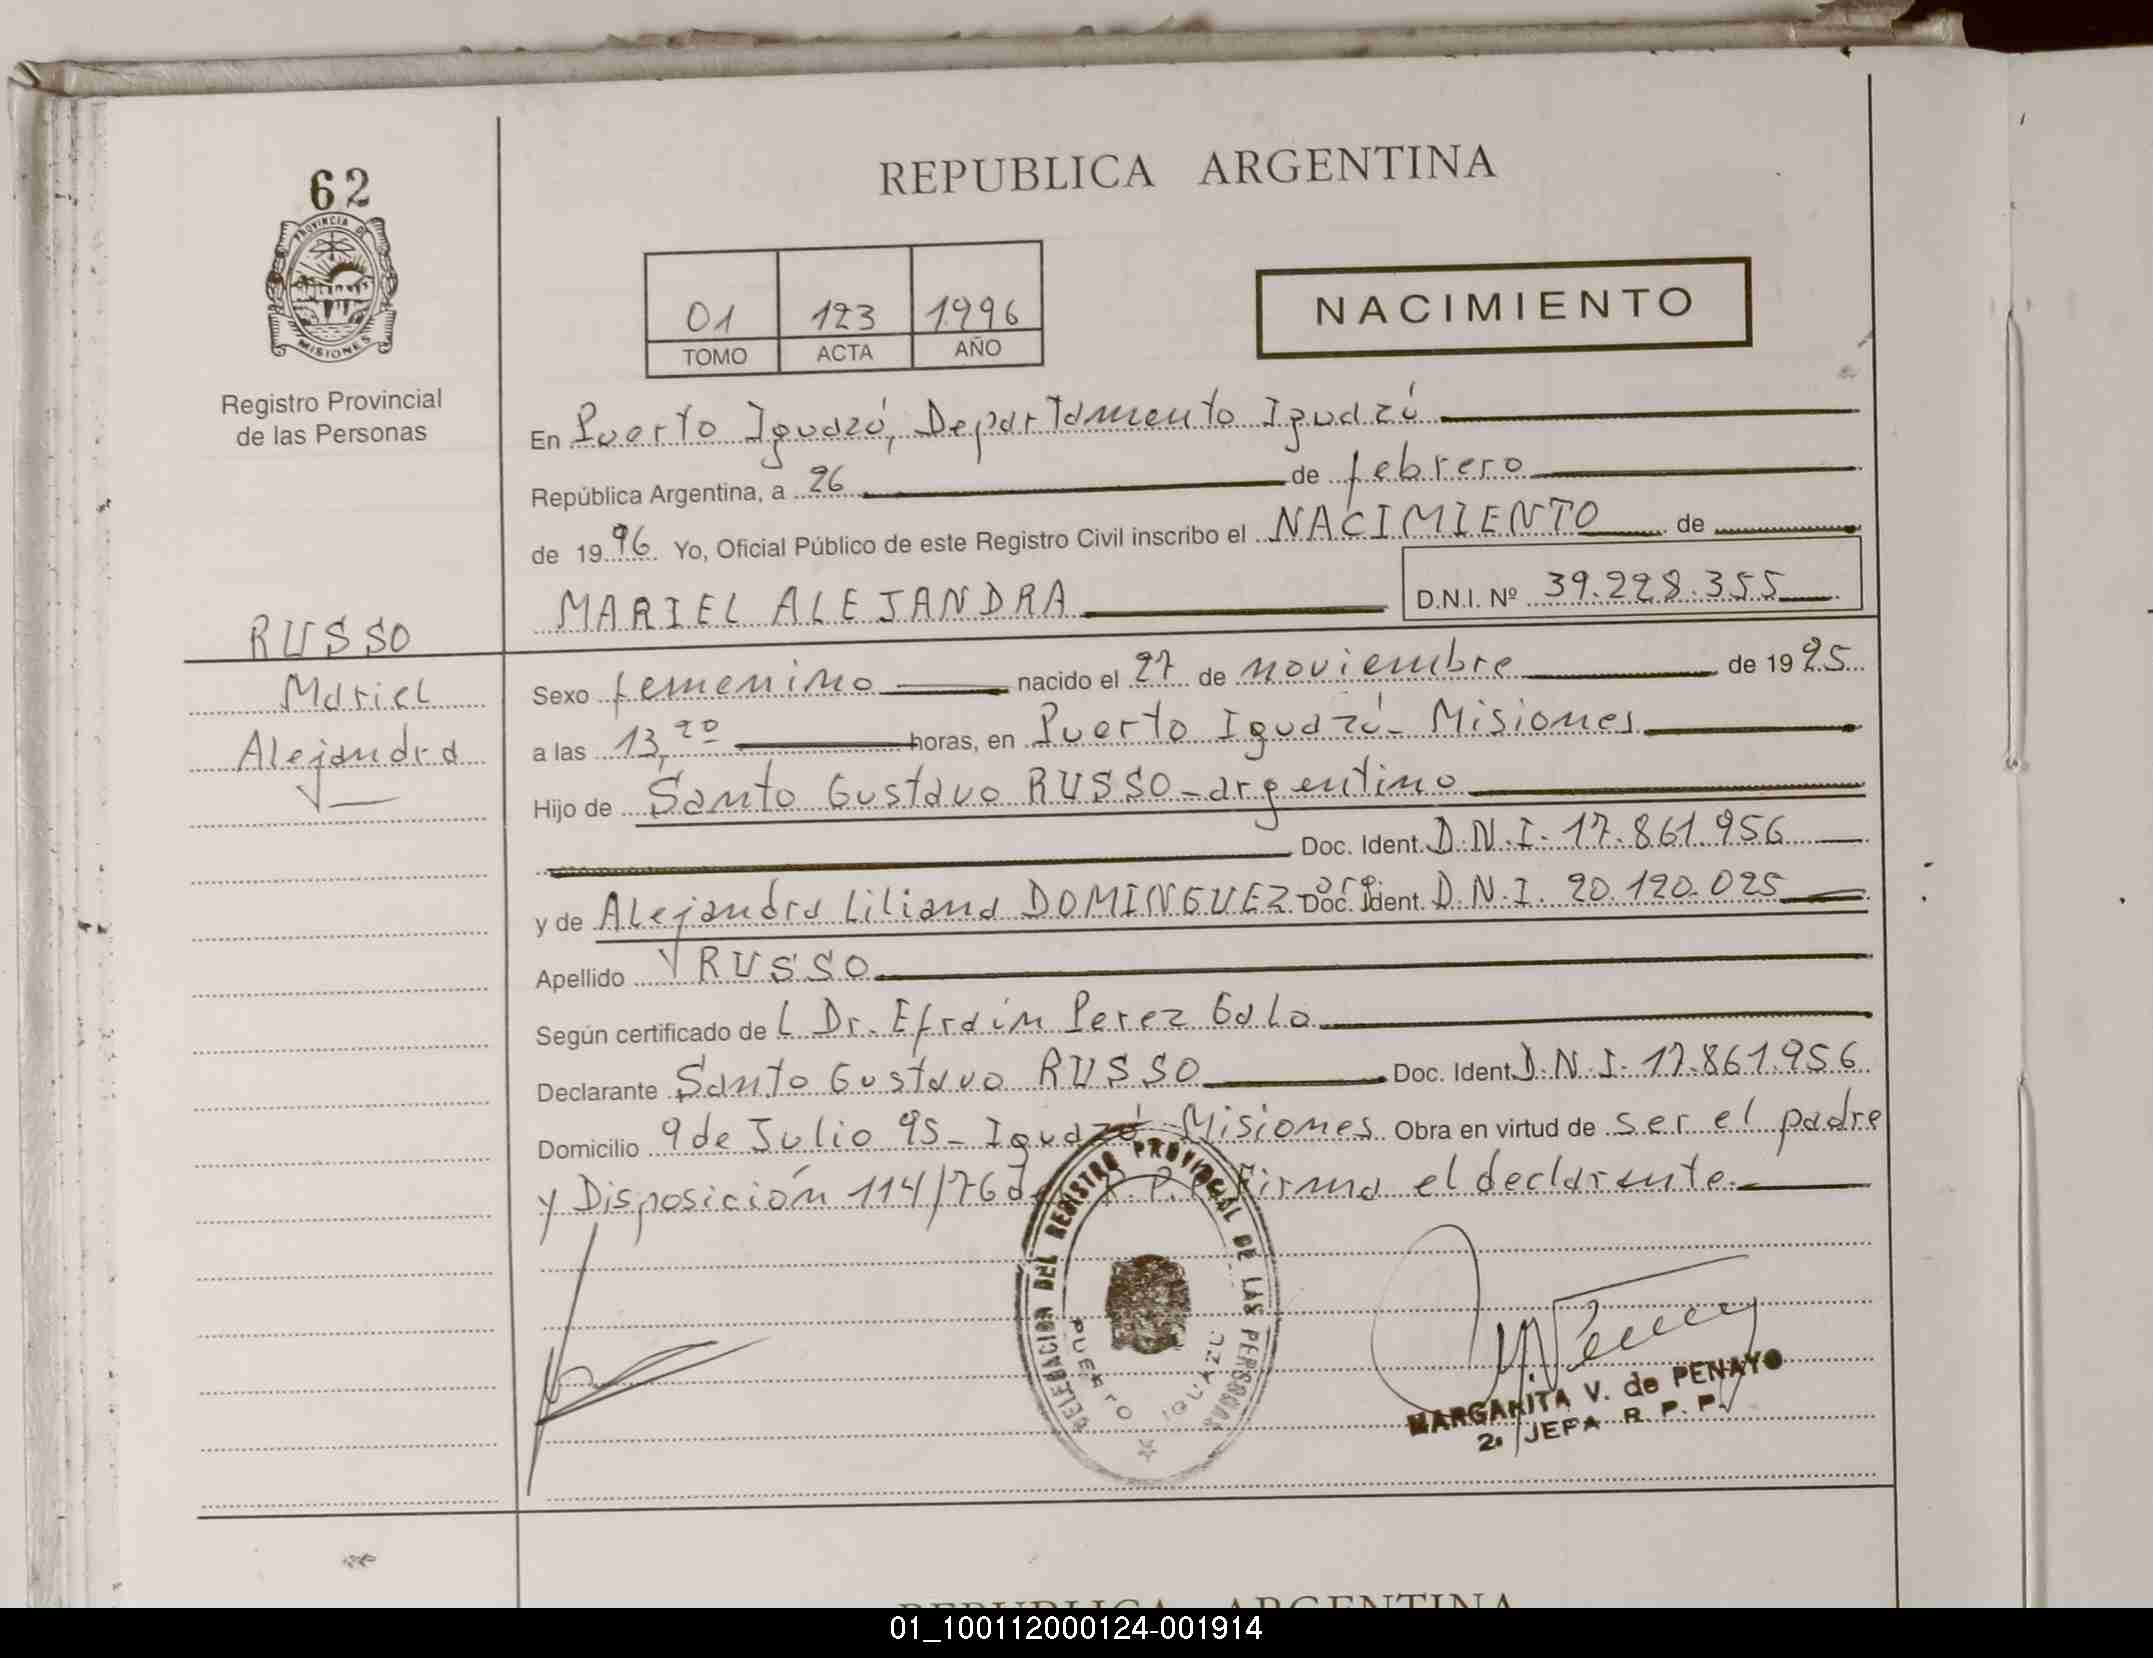 62
PROVINCIA DE
MISIONES
Registro Provincial
de las Personas
RUSSO
Mariel
Alejandra
REPUBLICA ARGENTINA
01 123 1996
TOMO ACTA AÑO
NACIMIENTO
En Puerto Iguazú, Departamento Iguazú
República Argentina, a 26 de febrero
de 1996 Yo, Oficial Público de este Registro Civil inscribo el NACIMIENTO de
MARIEL ALEJANDRA D.N.I. Nº 39.228.355
Sexo femenino nacido el 27 de noviembre de 1995
a las 13,20 horas, en Puerto Iguazú - Misiones
Hijo de Santo Gustavo RUSSO - argentino
Doc. Ident. D.N.I. 17.861.956
y de Alejandra Liliana DOMINGUEZ arg. Doc. Ident. D.N.I. 20.120.025
Apellido RUSSO
Según certificado del Dr. Efraín Perez Galo
Declarante Santo Gustavo RUSSO Doc. Ident. D.N.I. 17.861.956
Domicilio 9 de Julio 95 - Iguazú Misiones Obra en virtud de ser el padre
y Disposición 114/76 R.P.P. Firma el declarante.
DELEGACION DEL REGISTRO PROVINCIAL DE LAS PERSONAS
PUERTO IGUAZU
MARGARITA V. de PENAYO
2. JEFA R. P. P.
REPUBLICA ARGENTINA
01_100112000124-001914